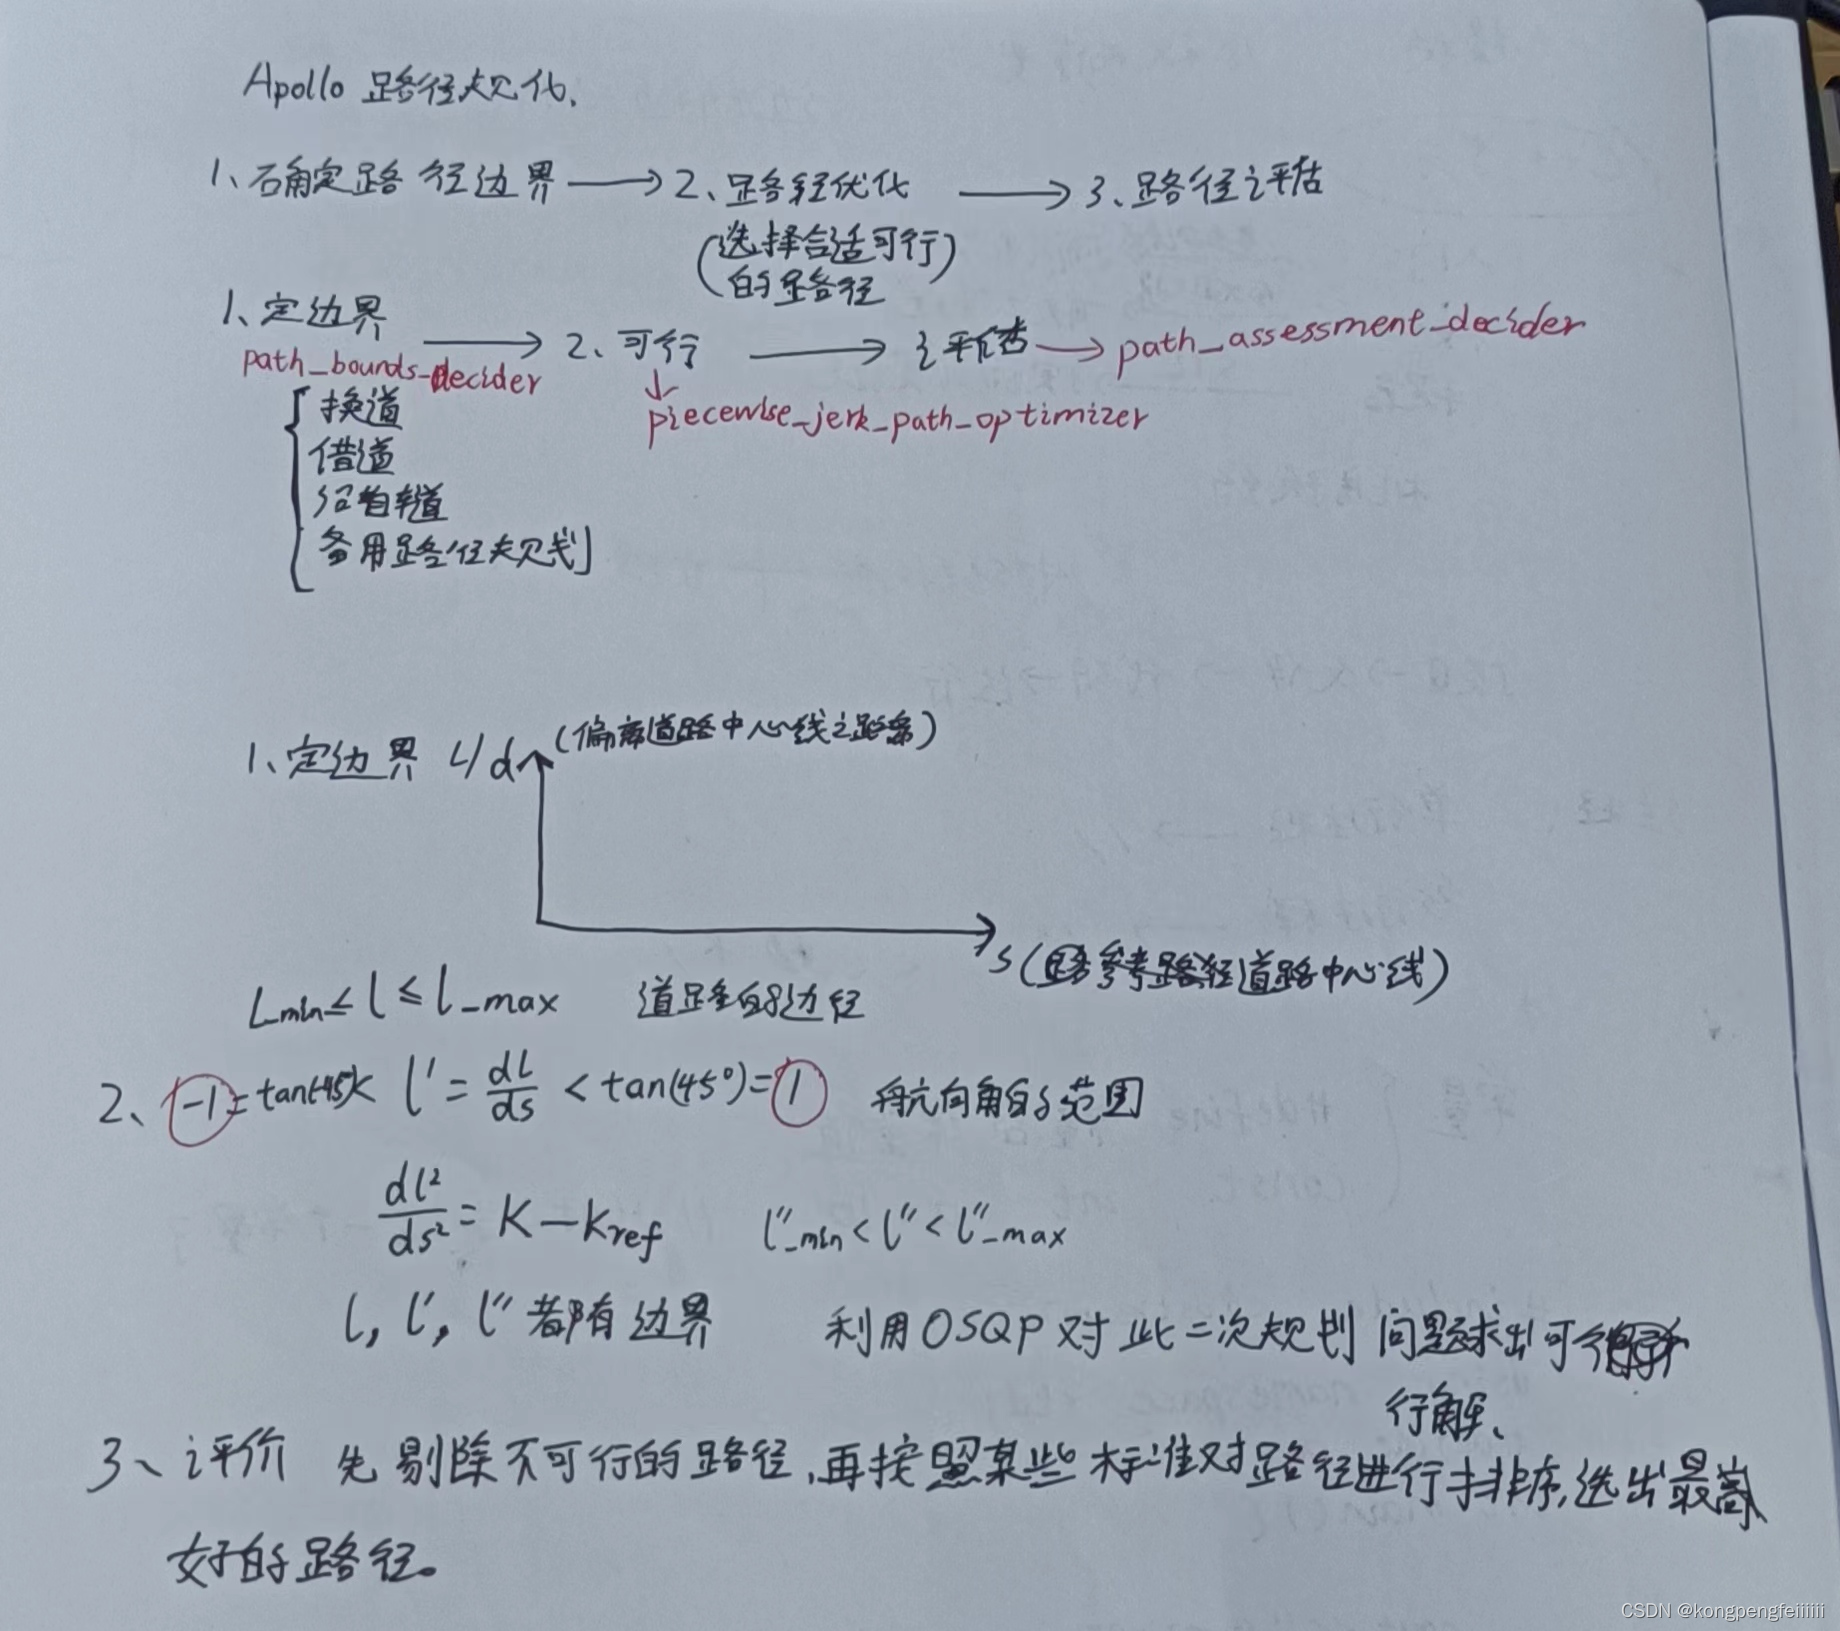 Apollo 路径规化.
1、确定路径边界 → 2、路径优化 → 3、路径评估
(选择合适可行)
(的路径
1、定边界 → 2、可行 → 评估 → path_assessment_decider
path_bounds_decider
↓
piecewise_jerk_path_optimizer
换道
借道
沿自车道
备用路径规划
1、定边界 L/d (偏离道路中心线之路
s (参考路径道路中心线)
L_min ≤ l ≤ l_max 道路的边径
2、-1 = tan(-45)< l' = dl/ds < tan(45°) = 1 航向角的范围
dl²/ds² = K - Kref l''_min < l'' < l''_max
l, l', l'' 都有边界 利用OSQP对此二次规划问题求出可
行解、
3、评价 先剔除不可行的路径,再按照某些标准对路径进行排序,选出最
好的路径。
CSDN @kongpengfeiiiiii